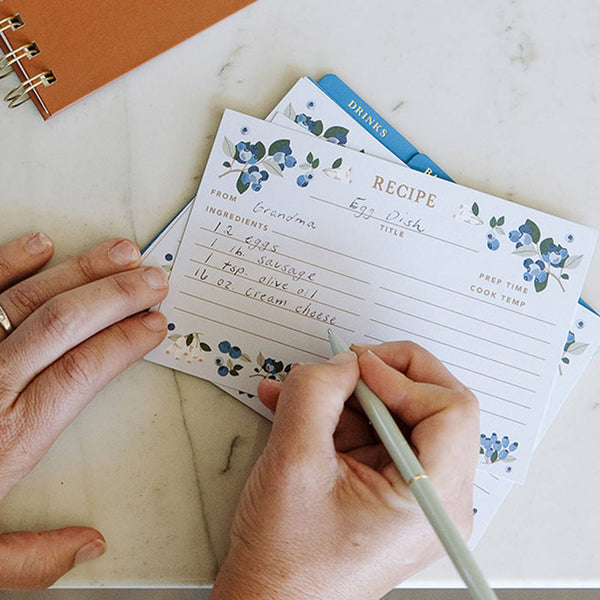 DRINKS
RECIPE
Egg Dish
TITLE
FROM Grandma
INGREDIENTS
12 eggs
1 lb. sausage
1 tsp. olive oil
16 oz cream cheese
PREP TIME
COOK TEMP